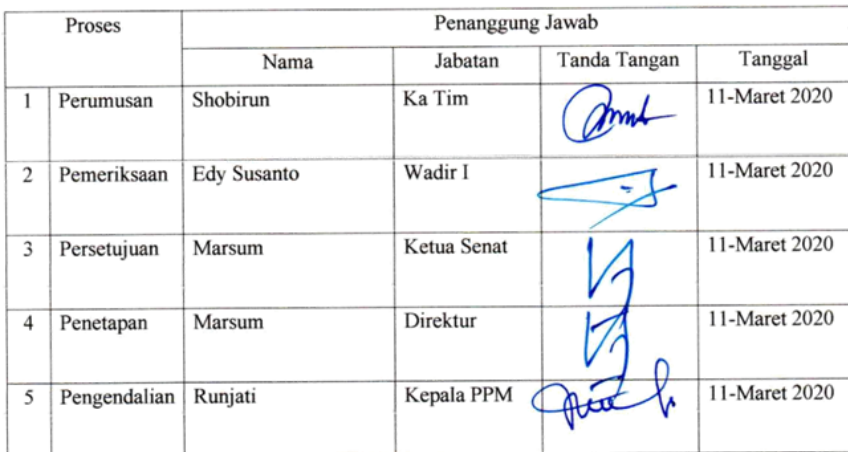 Proses Penanggung Jawab
Nama Jabatan Tanda Tangan Tanggal
1 Perumusan Shobirun Ka Tim 11-Maret 2020
2 Pemeriksaan Edy Susanto Wadir I 11-Maret 2020
3 Persetujuan Marsum Ketua Senat 11-Maret 2020
4 Penetapan Marsum Direktur 11-Maret 2020
5 Pengendalian Runjati Kepala PPM 11-Maret 2020